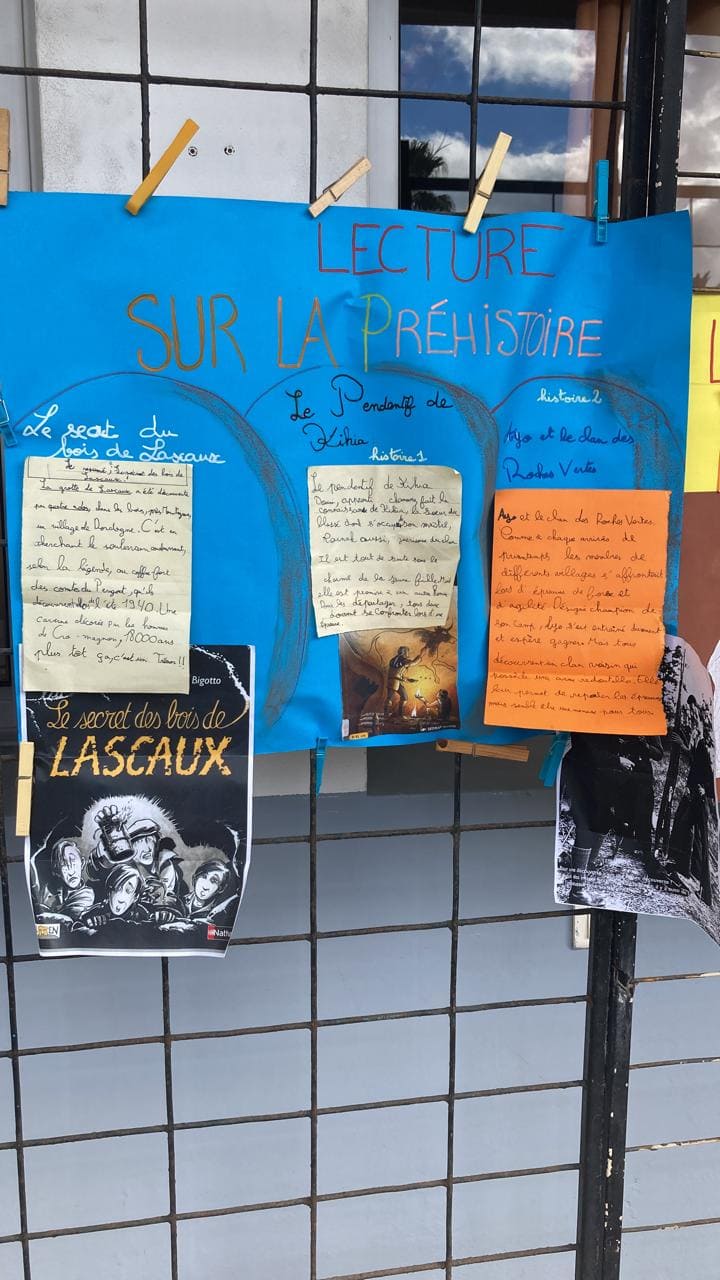 LECTURE
SUR LA PRÉHISTOIRE
Le secret du
bois de Lascaux
Le résumé : Le secret des bois de
Lascaux :
La grotte de Lascaux a été découverte
par quatre ados, dans les bois, près Montignac,
un village de Dordogne. C'est en
cherchant le souterrain contenant,
selon la légende, un coffre-fort
des comtes du Périgord, qu'ils
découvrent l'été 1940. Une
caverne décorée par les hommes
de Cro-magnon, 18000 ans
plus tôt ça, c'est un Trésor !!
Bigotto
Le secret des bois de
LASCAUX
Nath
Le Pendentif de
Kihia
histoire 1
Le pendentif de Kihia
apprenti chamane, fait la
connaissance de Kihia, la sœur du
blessé dont s'occupe son maître,
aussi,
Il est tout de suite sous le
charme de la jeune fille. Mais
elle est promise à un autre homme
Pour les départager, tous deux
doivent se confronter lors d'une
épreuve.
histoire 2
Ayo et le clan des
Roches Vertes
Ayo et le clan des Roches Vertes.
Comme à chaque arrivée de
printemps les membres de
différents villages s'affrontent
lors d'épreuves de force et
d'agilité. Désigné champion de
son camp, Ayo s'est entraîné durement
et espère gagner. Mais tous
découvrent un clan voisin qui
possède une arme redoutable. Elle
leur permet de remporter les épreuves
mais semble être une menace pour tous.